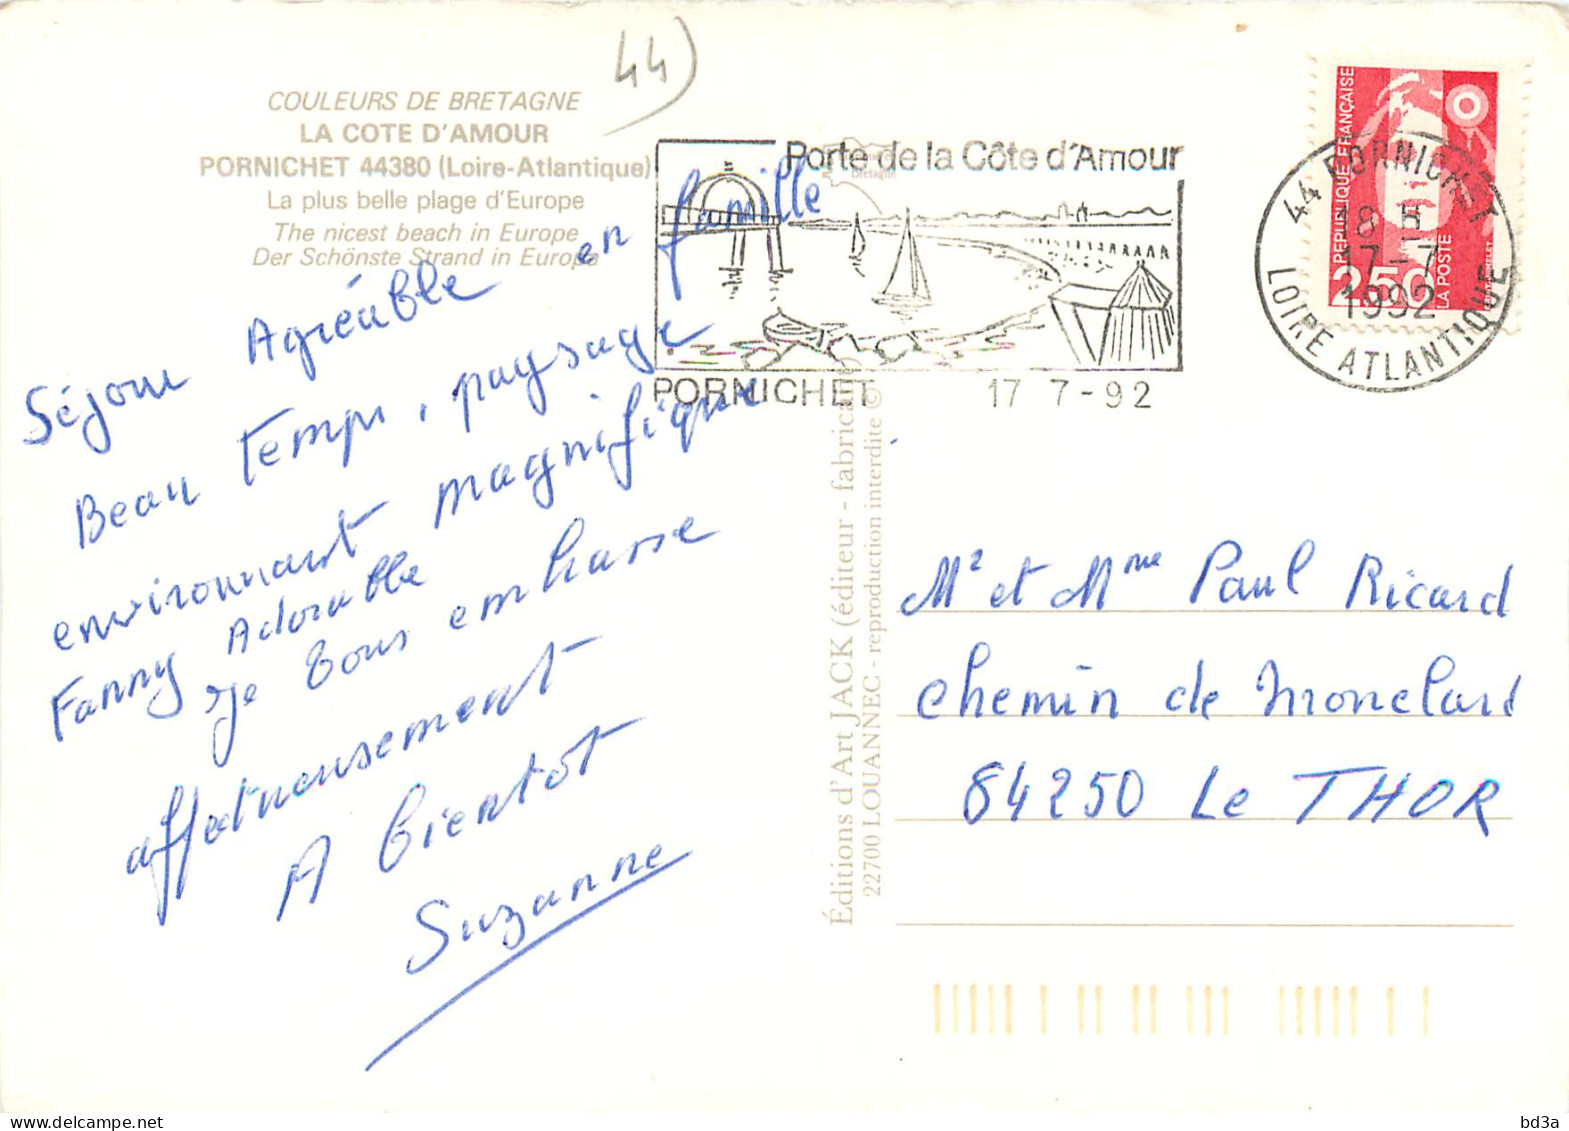 44)
COULEURS DE BRETAGNE
LA COTE D'AMOUR
PORNICHET 44380 (Loire-Atlantique)
La plus belle plage d'Europe
The nicest beach in Europe
Der Schönste Strand in Europa
Porte de la Côte d'Amour
Bretagne
PORNICHET 17 7-92
44 PORNICHET
18 H
17-7
1992
LOIRE ATLANTIQUE
REPUBLIQUE FRANÇAISE
2,50
LA POSTE
Séjour Agréable en famille
Beau temps, paysage
environnant magnifique
Fanny Adorable
Je vous embrasse
affectueusement
A bientot
Suzanne
Éditions d'Art JACK (éditeur - fabricant)
22700 LOUANNEC - reproduction interdite ©
Mr et Mme Paul Ricard
Chemin de Monclard
84250 Le THOR
bd3a